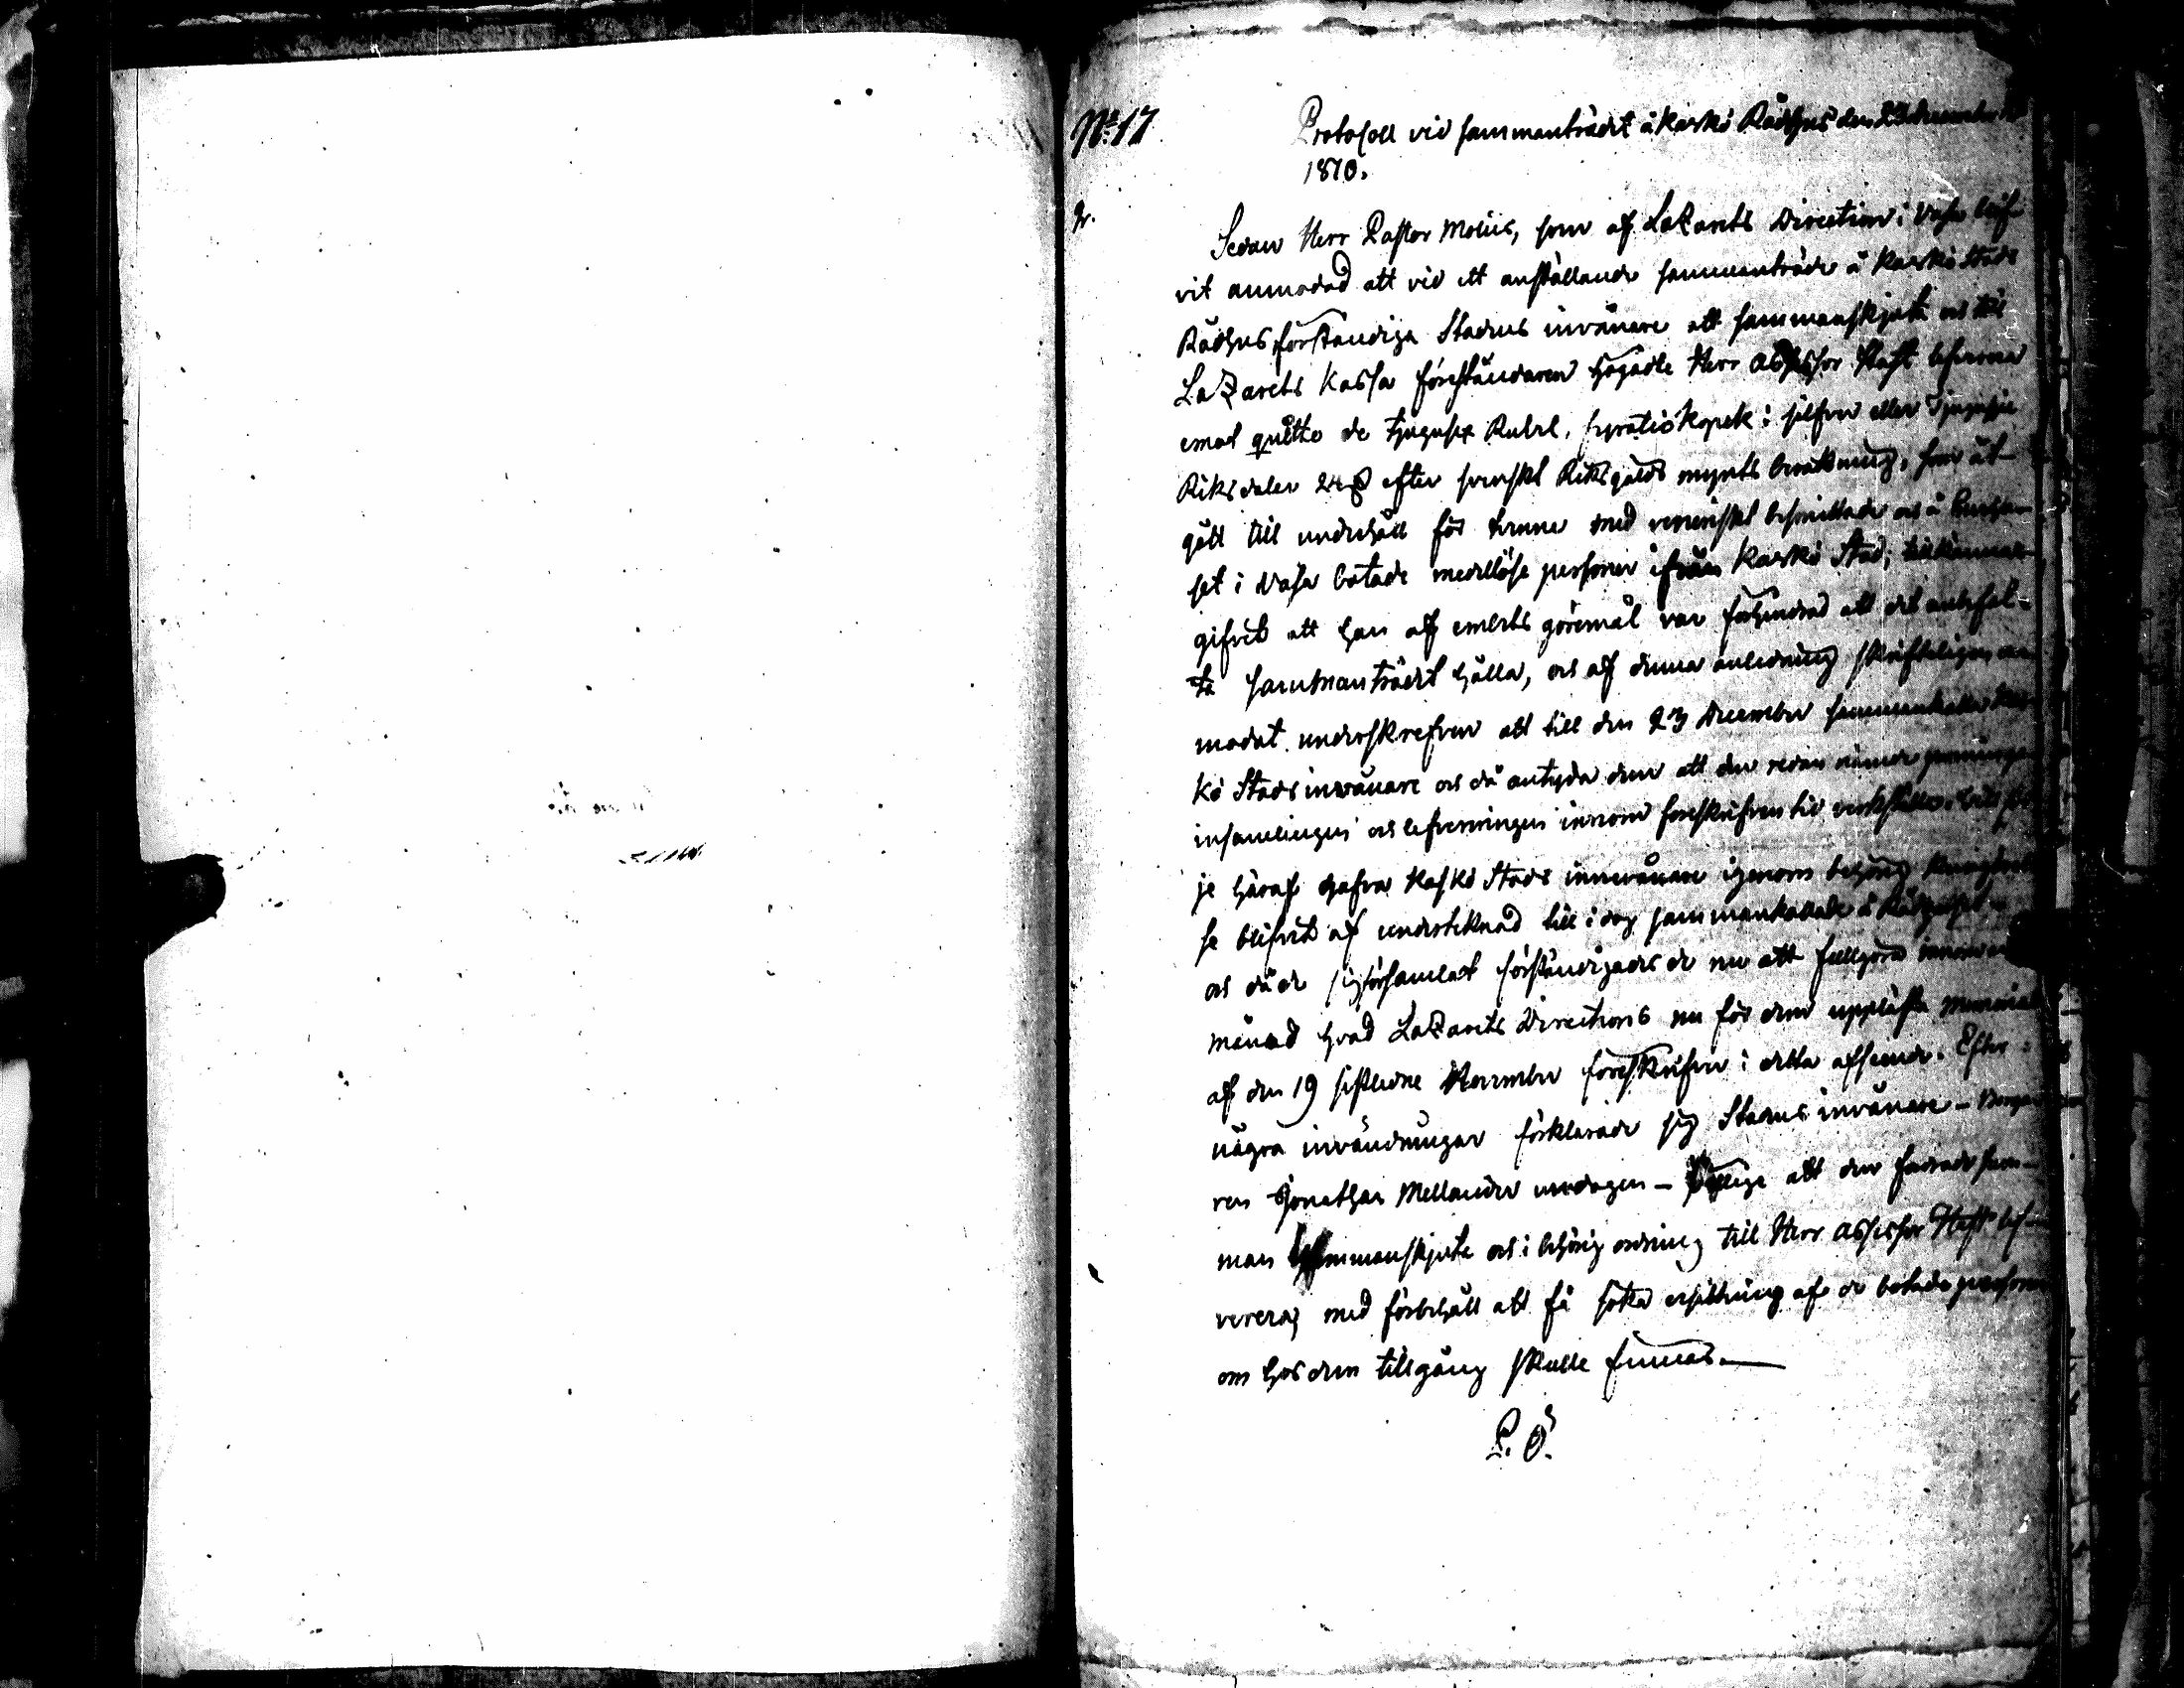 No. 17
Protocoll vid sammanträdet å Kaskö Rådhus den 23 december
1810.
Sedan Herr Pastor Molin, som af LaZarets Direction i Vasa blif-
vit anmodad att vid ett anställande sammanträde å Kaskö Stads
Rådhus förständiga Stadens invånare att sammanskjuta och till
LaZarets Kassa föreståndaren högädle Herr Assessor Haft leverera
emot quitto de tjugusex Rubel, fyratio Kopek i silfver eller
Riksdaler 24 ß efter svenskt Riksgälds mynts beräkning, som åt-
gått till underhåll för tvenne med veneriskt besmittade och å
set i Vasa botade medellöse personer ifrån Kaskö Stad, tillkänna-
gifvit att han af embets göremål var förhindrad att det anbefal-
ta sammanträdet hålla, och af denna anledning skrifteligen an-
modat underskrefven att till den 23 December sammankalla Kas-
kö Stads invånare och då antyda dem att den redan nämnde pennings
insamlingen och lefvereringen innom föreskrifven tid verkställa.
je häraf hafva Kaskö Stads innevånare igenom behörig kungörel-
se blifvit af undertecknad till i dag sammankallade å Rådhuset
och då de sig församlat förständigades de nu att fullgöra innom en
månad hvad LaZarets Directions nu för dem uppläste Memorial
af den 19 sistledne November föreskrifver i detta afseende. Efter
några invändningar förklarade sig Stadens invånare - Borga-
ren Jonathan Mellander undtagen - villige att den fordrade sum-
man sammanskjuta och i behörig ordning till Herr Assessor Haft lef-
verera, med förbehåll att få söka ersättning af de botade personer
om hos dem tillgång skulle finnas.
P. Ö.